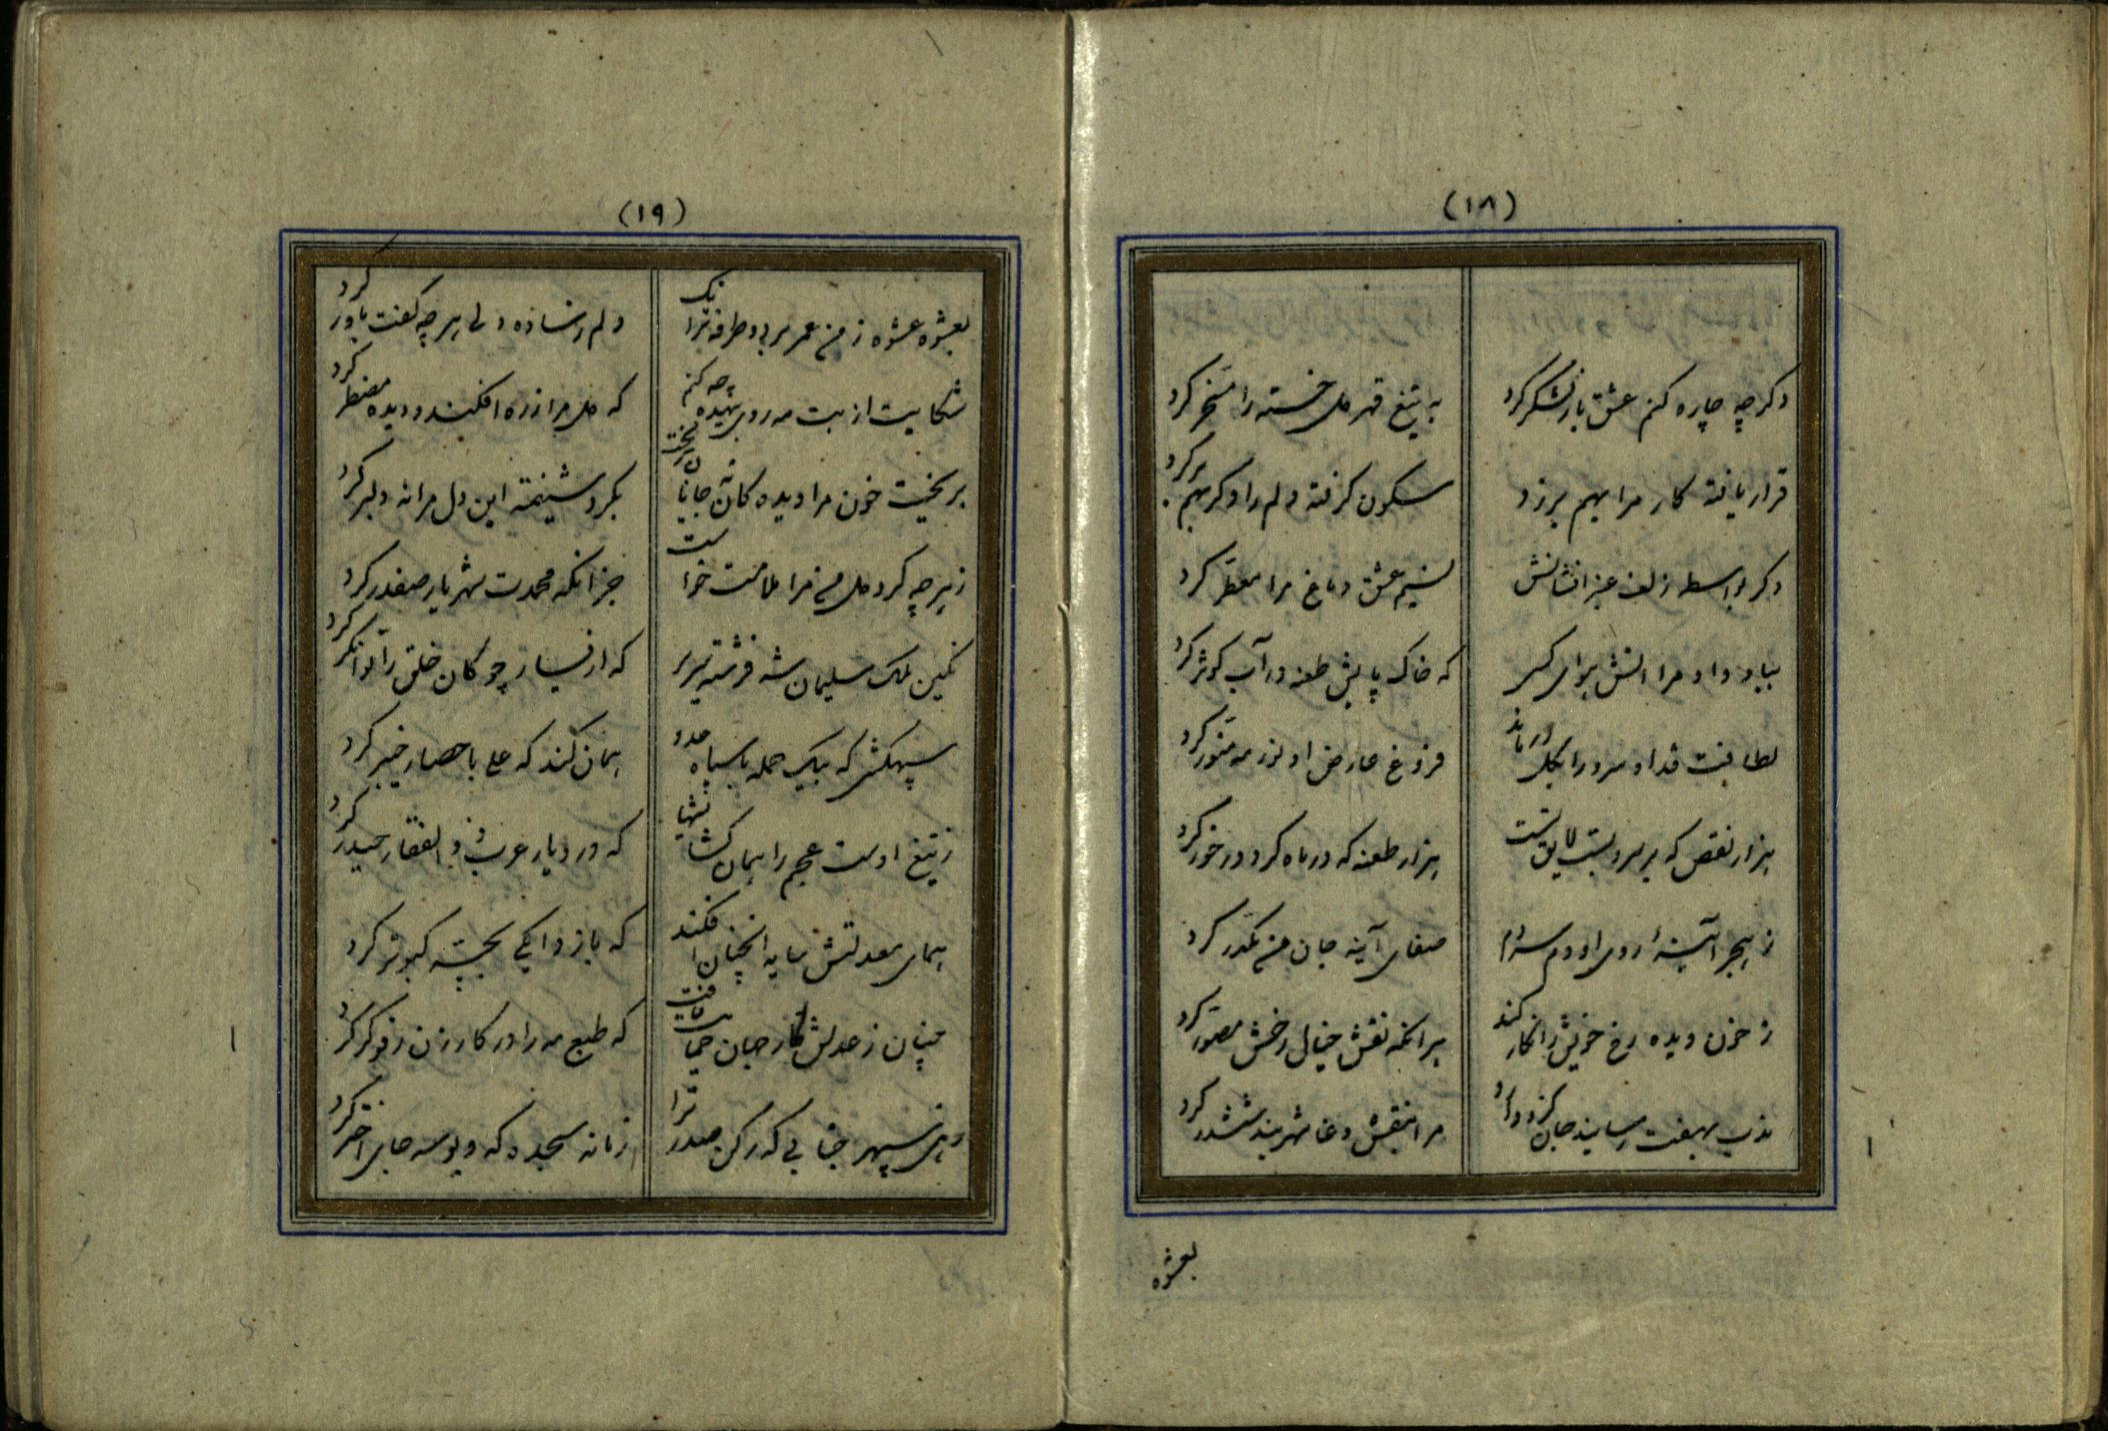 (۱۸)
دگر چه چاره کنم عشق باز لشکر کرد به تیغ قهر دل خسته را مسخر کرد
قرار یافته کار مرا بهم بر زد سکون گرفته دلم را دگر بهم بر کرد
دگر بواسطه زلف عنبر افشانش نسیم عشق دماغ مرا معطر کرد
بباد داد مرا آتش هوای کسی که خاک پایش طعنه در آب کوثر کرد
لطافت قد او سرو را بگل درماند فروغ عارض او نور مه منور کرد
هزار نقص که بر سرو بست لایق نیست هزار طعنه که در ماه کرد در خور کرد
ز هجر آینهٔ روی او دم سردم صفای آینه جان من مکدر کرد
ز خون دیده رخ خویش را نگار کند هر آنکه نقش خیال رخش مصور کرد
ندب بهفت رسانید جان گرو دارد مرا بنقش دغا شهربند ششدر کرد
بعشوه
(۱۹)
بعشوه عشوه ز من عمر برد و طرفه تر آنک دلم فسانه ولی هر چه گفت باور کرد
شکایت از بت مه روی بیهده چه کنم که دل مرا ز ره افکند و دیده مضطر کرد
بریخت خون مرا دیده کان نه جانان ریخت بکرد شیفته این دل مرا نه دلبر کرد
ز هر چه کرد دل من مرا ملامت خواست جز آنکه محمدت شهریار صفدر کرد
نگین ملک سلیمان شه فرشته سریر که از یسار چو کان خلق را توانگر کرد
سپهکشی که بیک حمله با سپاه عدو همان کند که علی با حصار خیبر کرد
ز تیغ اوست عجم را همان گشایشها که در دیار عرب ذوالفقار حیدر کرد
همای معدلتش سایه آنچنان افکند که باز را یکی بچهٔ کبوتر کرد
چنان ز عدلش کار جهان حمایت یافت که طبع مه را در کار زن رفوگر کرد
زهی سپهر جنابی که رکن صدر ترا زمانه سجده گه و بوسه جای اختر کرد